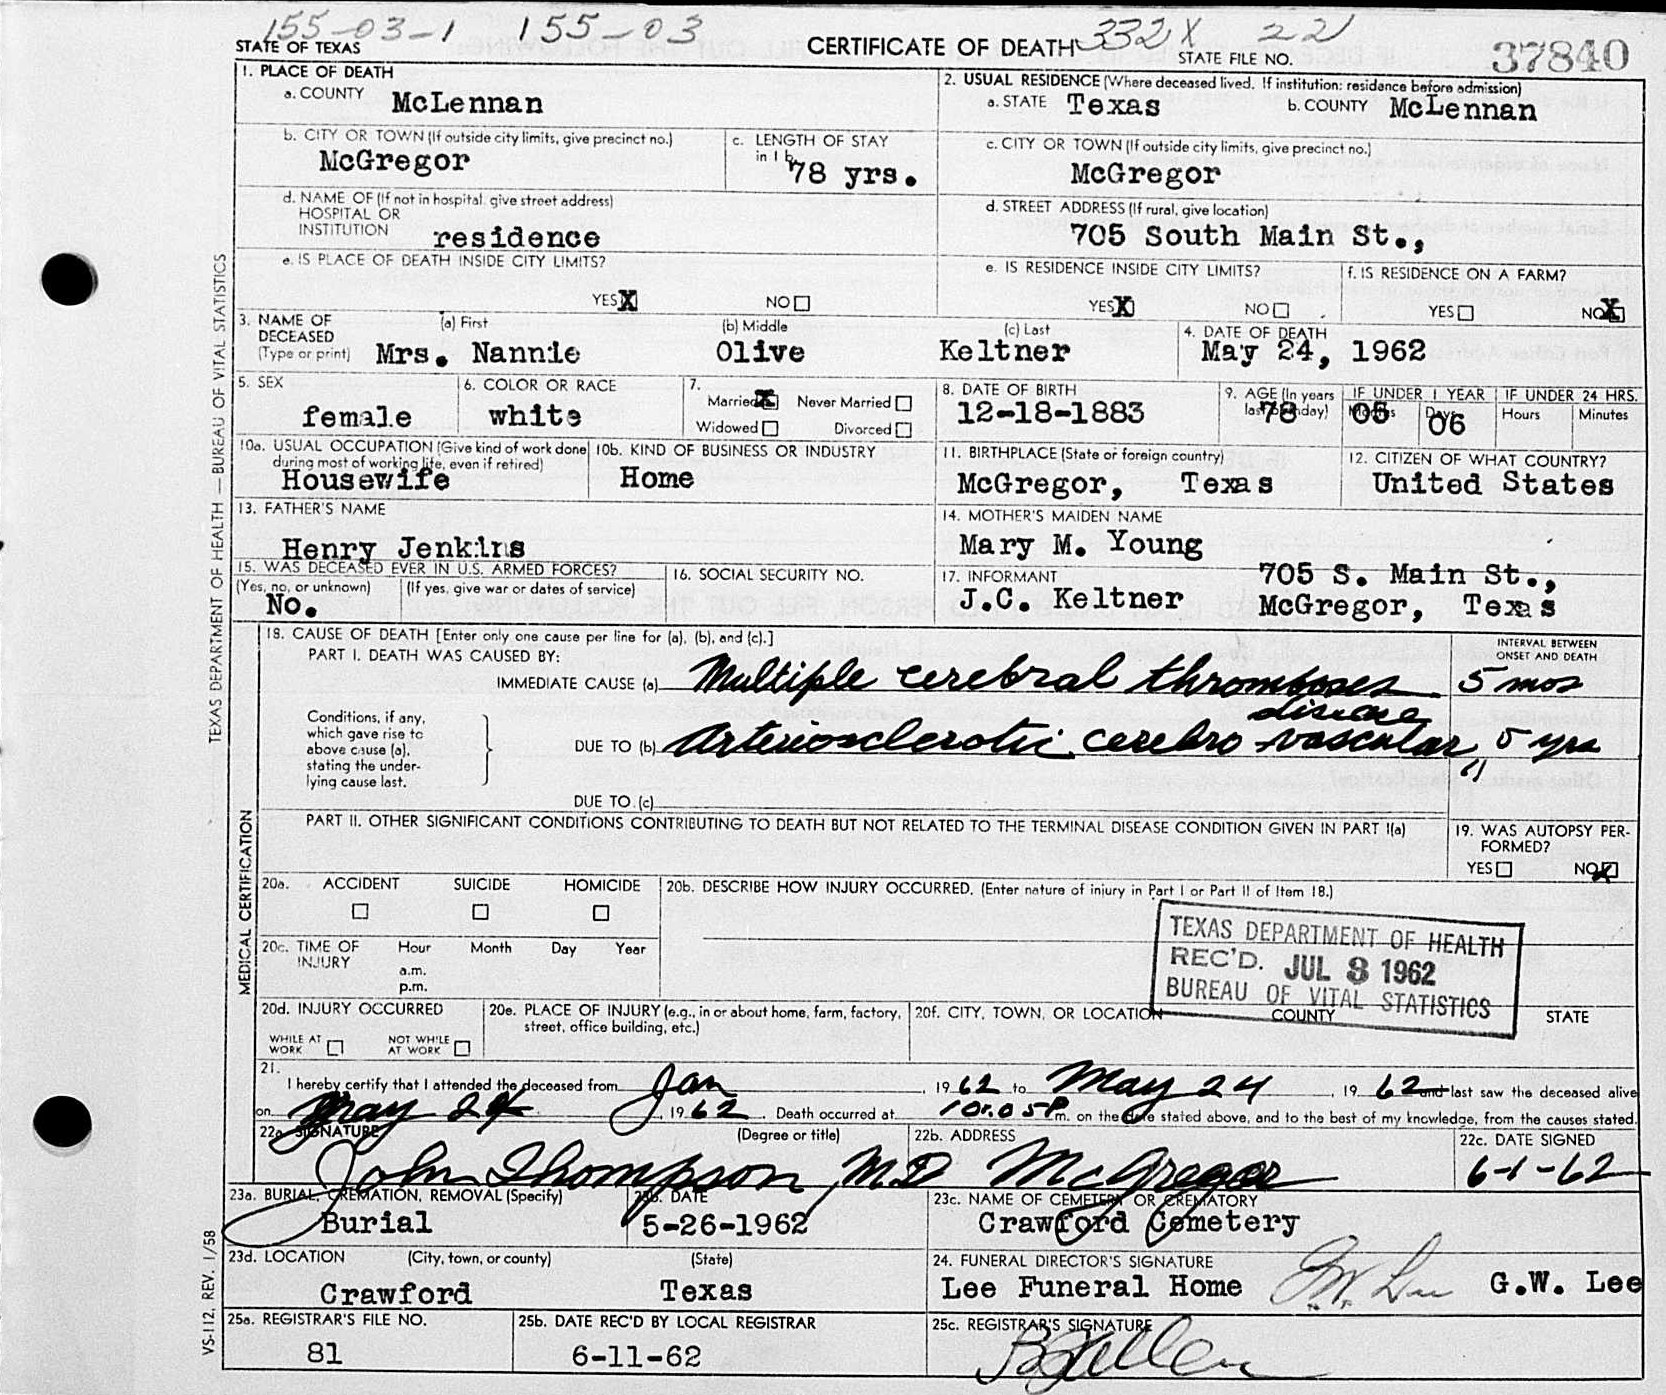 155-03-1 155-03 332X 221
STATE OF TEXAS CERTIFICATE OF DEATH STATE FILE NO. 37840
1. PLACE OF DEATH
a. COUNTY McLennan
2. USUAL RESIDENCE (Where deceased lived. If institution: residence before admission)
a. STATE Texas b. COUNTY McLennan
b. CITY OR TOWN (If outside city limits, give precinct no.)
McGregor
c. LENGTH OF STAY
in 1 b.
78 yrs.
c. CITY OR TOWN (If outside city limits, give precinct no.)
McGregor
d. NAME OF (If not in hospital give street address)
HOSPITAL OR
INSTITUTION residence
d. STREET ADDRESS (If rural, give location)
705 South Main St.,
e. IS PLACE OF DEATH INSIDE CITY LIMITS?
YES X NO
e. IS RESIDENCE INSIDE CITY LIMITS?
YES X NO
f. IS RESIDENCE ON A FARM?
YES NO X
3. NAME OF
DECEASED
(Type or print)
(a) First (b) Middle (c) Last
Mrs. Nannie Olive Keltner
4. DATE OF DEATH
May 24, 1962
5. SEX
female
6. COLOR OR RACE
white
7.
Married X Never Married
Widowed Divorced
8. DATE OF BIRTH
12-18-1883
9. AGE (In years
last birthday)
78
IF UNDER 1 YEAR
Months Days
05 06
IF UNDER 24 HRS.
Hours Minutes
10a. USUAL OCCUPATION (Give kind of work done
during most of working life, even if retired)
Housewife
10b. KIND OF BUSINESS OR INDUSTRY
Home
11. BIRTHPLACE (State or foreign country)
McGregor, Texas
12. CITIZEN OF WHAT COUNTRY?
United States
13. FATHER'S NAME
Henry Jenkins
14. MOTHER'S MAIDEN NAME
Mary M. Young
15. WAS DECEASED EVER IN U.S. ARMED FORCES?
(Yes, no, or unknown) (If yes, give war or dates of service)
No.
16. SOCIAL SECURITY NO.
17. INFORMANT
J.C. Keltner
705 S. Main St.,
McGregor, Texas
18. CAUSE OF DEATH [Enter only one cause per line for (a), (b), and (c).]
PART I. DEATH WAS CAUSED BY:
IMMEDIATE CAUSE (a) Multiple cerebral thromboses
INTERVAL BETWEEN
ONSET AND DEATH
5 mos
Conditions, if any,
which gave rise to
above cause (a),
stating the under-
lying cause last.
disease
DUE TO (b) Arteriosclerotic cerebro-vascular 5 yrs
DUE TO (c)
PART II. OTHER SIGNIFICANT CONDITIONS CONTRIBUTING TO DEATH BUT NOT RELATED TO THE TERMINAL DISEASE CONDITION GIVEN IN PART I(a)
19. WAS AUTOPSY PER-
FORMED?
YES NO
20a. ACCIDENT SUICIDE HOMICIDE
20b. DESCRIBE HOW INJURY OCCURRED. (Enter nature of injury in Part I or Part II of Item 18.)
20c. TIME OF
INJURY
Hour Month Day Year
a.m.
p.m.
TEXAS DEPARTMENT OF HEALTH
REC'D. JUL 3 1962
BUREAU OF VITAL STATISTICS
20d. INJURY OCCURRED
WHILE AT
WORK
NOT WHILE
AT WORK
20e. PLACE OF INJURY (e.g., in or about home, farm, factory,
street, office building, etc.)
20f. CITY, TOWN, OR LOCATION COUNTY STATE
21.
I hereby certify that I attended the deceased from Jan, 1962 to May 24, 1962 and last saw the deceased alive
on May 24, 1962. Death occurred at 10:05 P m. on the date stated above, and to the best of my knowledge, from the causes stated.
22a. SIGNATURE (Degree or title)
John Thompson, M.D.
22b. ADDRESS
McGregor
22c. DATE SIGNED
6-1-62
23a. BURIAL, CREMATION, REMOVAL (Specify)
Burial
23b. DATE
5-26-1962
23c. NAME OF CEMETERY OR CREMATORY
Crawford Cemetery
23d. LOCATION (City, town, or county) (State)
Crawford Texas
24. FUNERAL DIRECTOR'S SIGNATURE
Lee Funeral Home G.W. Lee G.W. Lee
25a. REGISTRAR'S FILE NO.
81
25b. DATE REC'D BY LOCAL REGISTRAR
6-11-62
25c. REGISTRAR'S SIGNATURE
TEXAS DEPARTMENT OF HEALTH — BUREAU OF VITAL STATISTICS
MEDICAL CERTIFICATION
VS-112, REV. 1/58